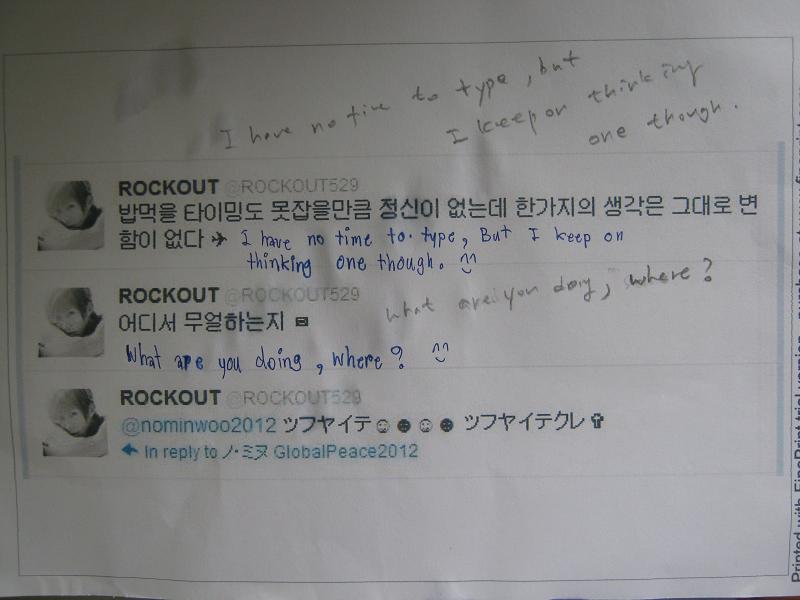 I have no time to type, but
I keep on thinking
one though.
ROCKOUT @ROCKOUT529
밥먹을 타이밍도 못잡을만큼 정신이 없는데 한가지의 생각은 그대로 변
함이 없다 ✈ I have no time to type, But I keep on
thinking one though. ^^
ROCKOUT @ROCKOUT529
what are you doing, where?
어디서 무얼하는지
What are you doing, where? ^^
ROCKOUT @ROCKOUT529
@nominwoo2012 ツフヤイテ☺☻☺☻ ツフヤイテクレ✞
In reply to ノ·ミヌ GlobalPeace2012
Printed with FinePrint trial version